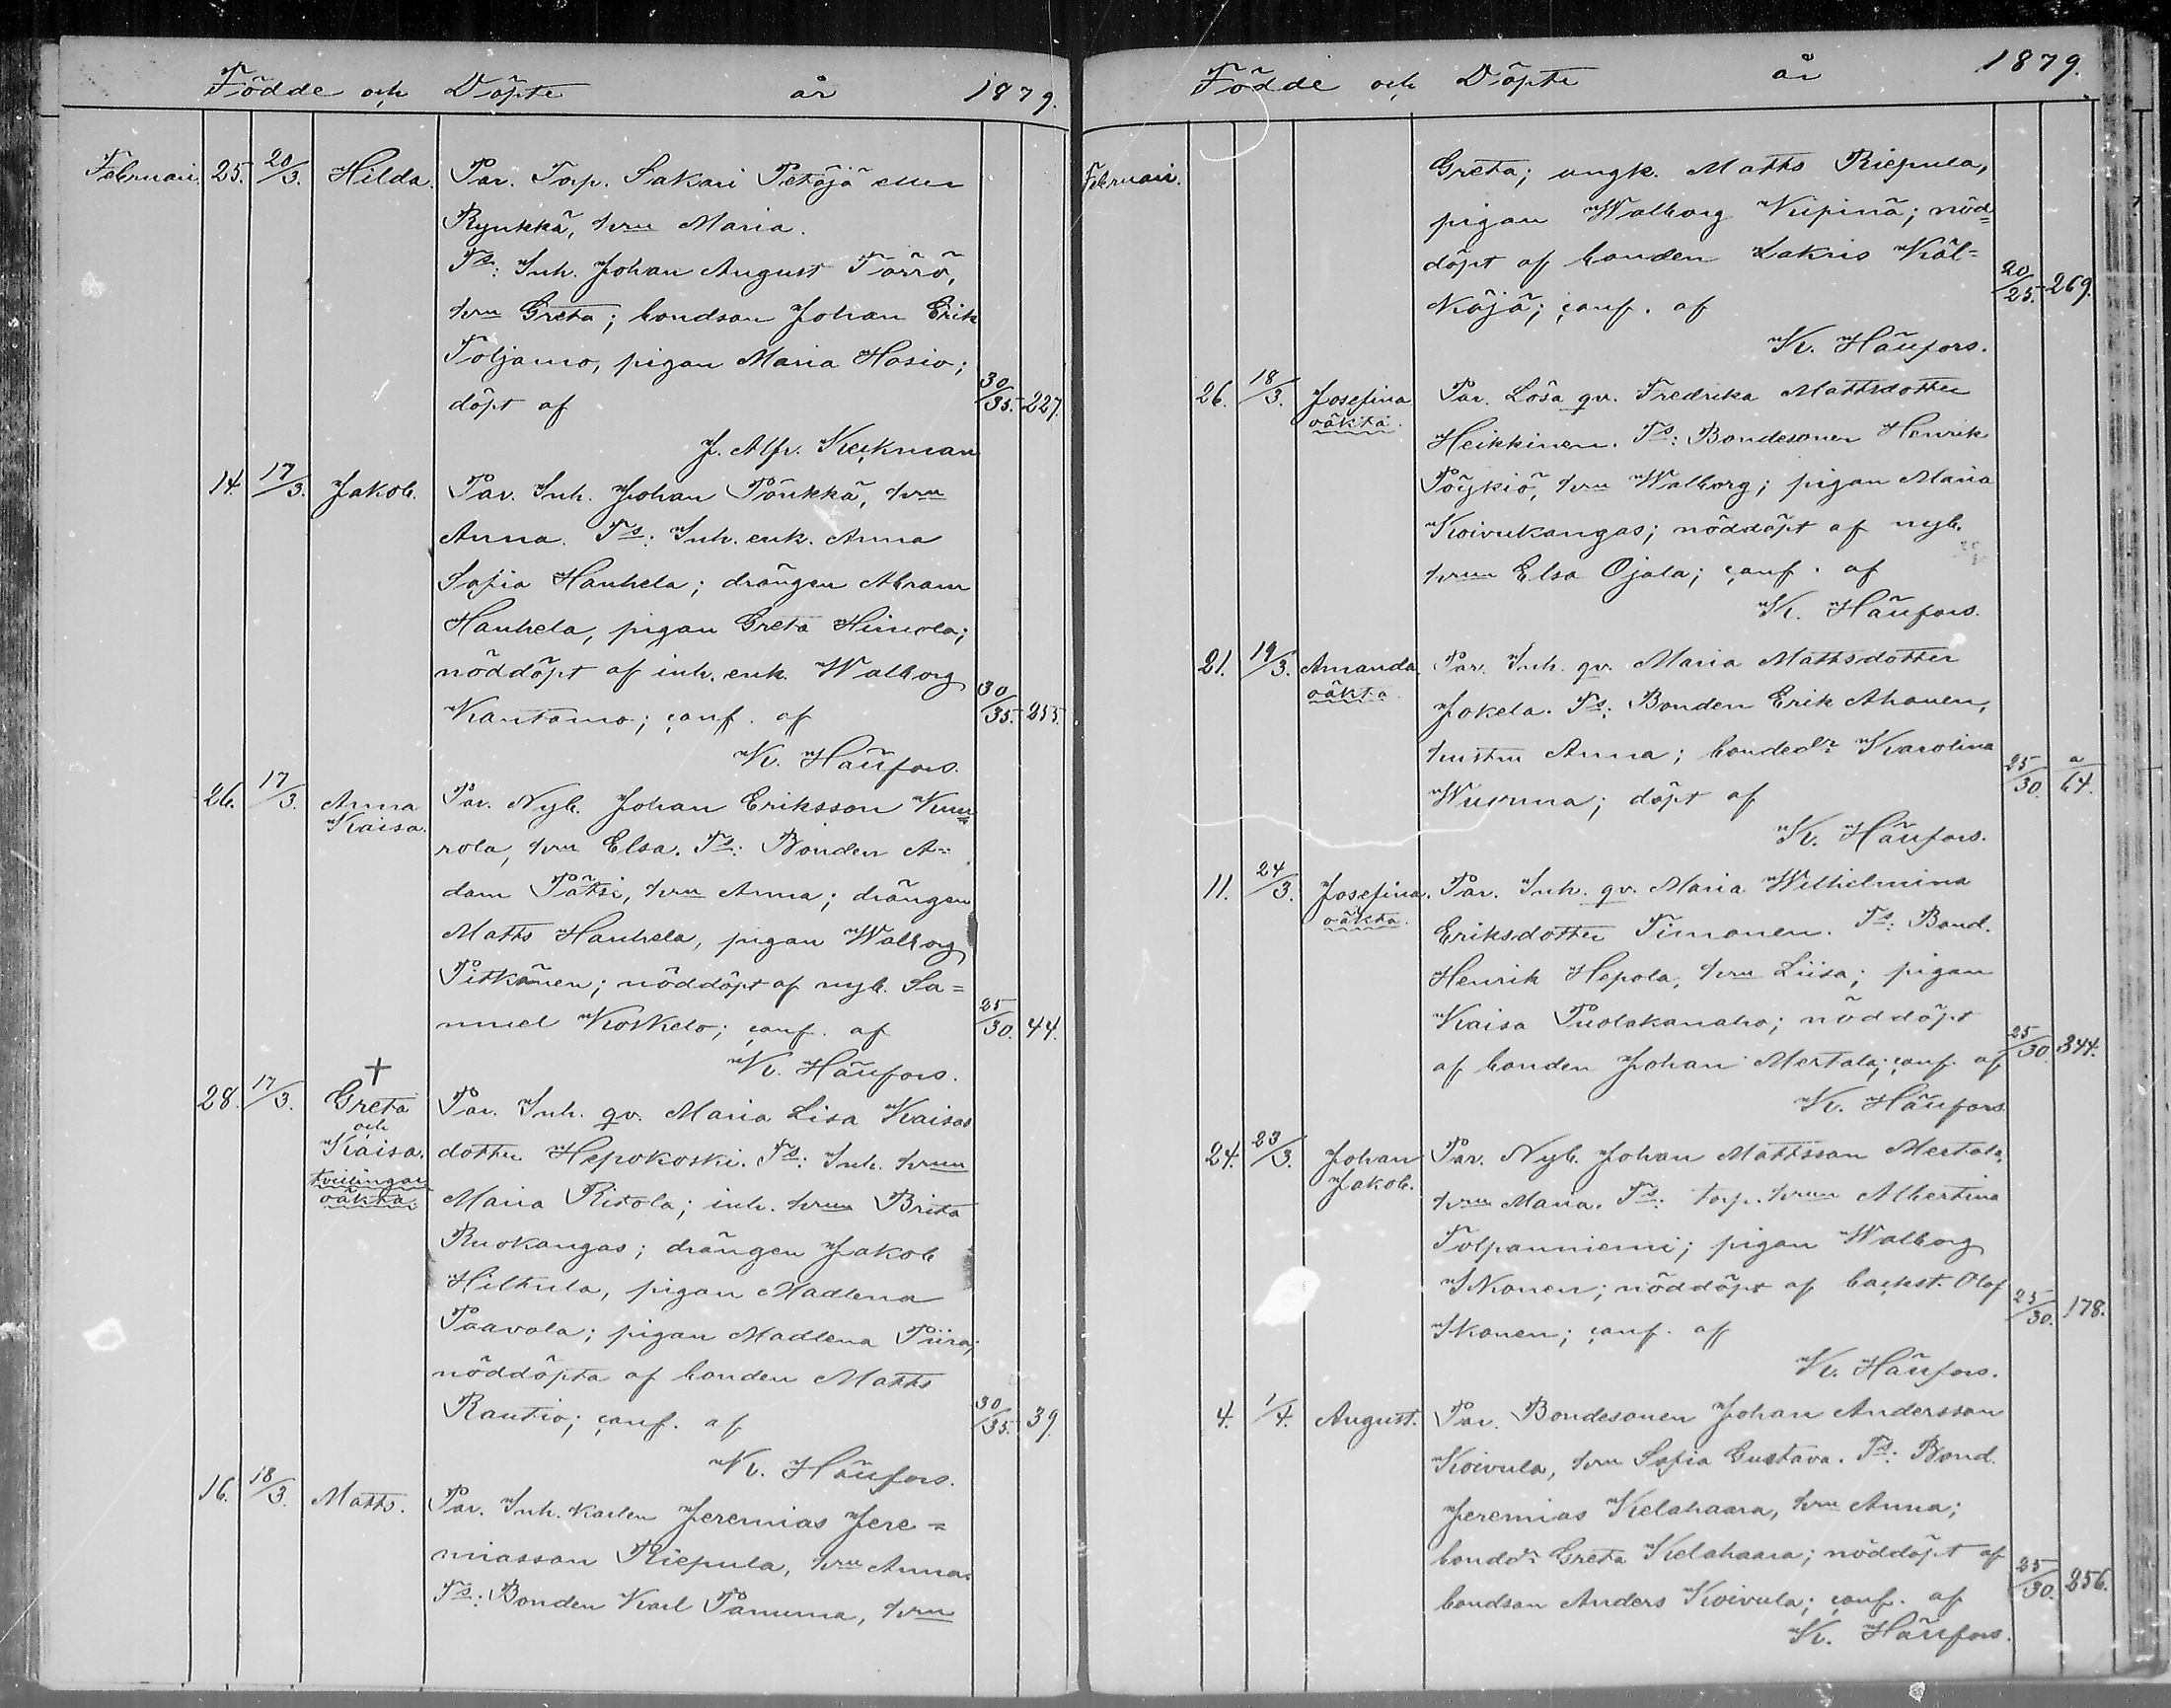 Födde och Döpte år 1879.
Februari. 25. 20/3. Hilda. Par. Torp. Sakari Petäjä eller
Rynkkä, hru Maria.
Ts: Inh. Johan August Törrö,
hru Greta; bondson Johan Erik
Toljamo, pigan Maria Hosio;
döpt af 30/35. 227.
J. Alfr. Keckman
14. 17/3. Jakob. Par. Inh. Johan Pöukkä, hru
Anna. Ts: Inh. enk. Anna
Sofia Hanhela; drängen Abram
Hanhela, pigan Greta Himola;
nöddöpt af inh. enk. Walborg
Kantomo; conf. af 30/35. 255.
K. Häufors.
26. 17/3. Anna Kaisa. Par. Nyb. Johan Eriksson Kum=
rola, hru Elsa. Ts: Bonden A=
dam Pätsi, hru Anna; drängen
Matts Hanhela, pigan Walborg
Pitkänen; nöddöpt af nyb. Sa=
muel Koskelo; conf. af 25/30. 44.
K. Häufors.
28. 17/3. + Greta och Kaisa. tvillingar oäkta. Par. Inh. qv. Maria Lisa Kaisas
dotter Hepokoski. Ts: Inh. hrun
Maria Ristola; inh. hrun Brita
Ruokangas; drängen Jakob
Hiltula, pigan Madlena
Paavola; pigan Madlena Piira;
nöddöpta af bonden Matts
Rautio; conf. af 30/35. 39.
K. Häufors.
16. 18/3. Matts. Par. Inh. karlen Jeremias Jere=
miasson Riepula, hru Anna.
Ts: Bonden Karl Panuma, hru
Födde och Döpte år 1879.
Februari. Greta; ungk. Matts Riepula,
pigan Walborg Niipinä; nöd=
döpt af bonden Zakris Käl=
käjä; conf. af 20/25. 269.
K. Häufors.
26. 18/3. Josefina oäkta. Par. Lösa qv. Fredrika Mattsdotter
Heikkinen. Ts: Bondesonen Henrik
Pöykiö, hru Walborg; pigan Maria
Koivukangas; nöddöpt af nyb.
hrun Elsa Ojala; conf. af
K. Häufors.
21. 19/3. Amanda oäkta. Par. Inh. qv. Maria Mattsdotter
Jokela. Ts: Bonden Erik Ahonen,
hustru Anna; bondedr Karolina
Wuoma; döpt af 25/30. a/64.
K. Häufors.
11. 24/3. Josefina. oäkta. Par. Inh. qv. Maria Wilhelmina
Eriksdotter Timonen. Ts: Bond.
Henrik Hepola, hru Liisa; pigan
Kaisa Puolakanaho; nöddöpt
af bonden Johan Mertala; conf. af 25/30. 344.
K. Häufors.
24. 23/3. Johan Jakob. Par. Nyb. Johan Mattsson Mertala,
hru Maria. Ts: torp. hrun Albertina
Tolpanniemi; pigan Walborg
Ikonen; nöddöpt af backst. Olof
Ikonen; conf. af 25/30. 178.
K. Häufors.
4. 1/4. August. Par. Bondesonen Johan Andersson
Koivula, hru Sofia Gustava. Ts: Bond.
Jeremias Kelahaara, hru Anna;
bonddr Greta Kelahaara; nöddöpt af
bondson Anders Koivula; conf. af 25/30. 256.
K. Häufors.